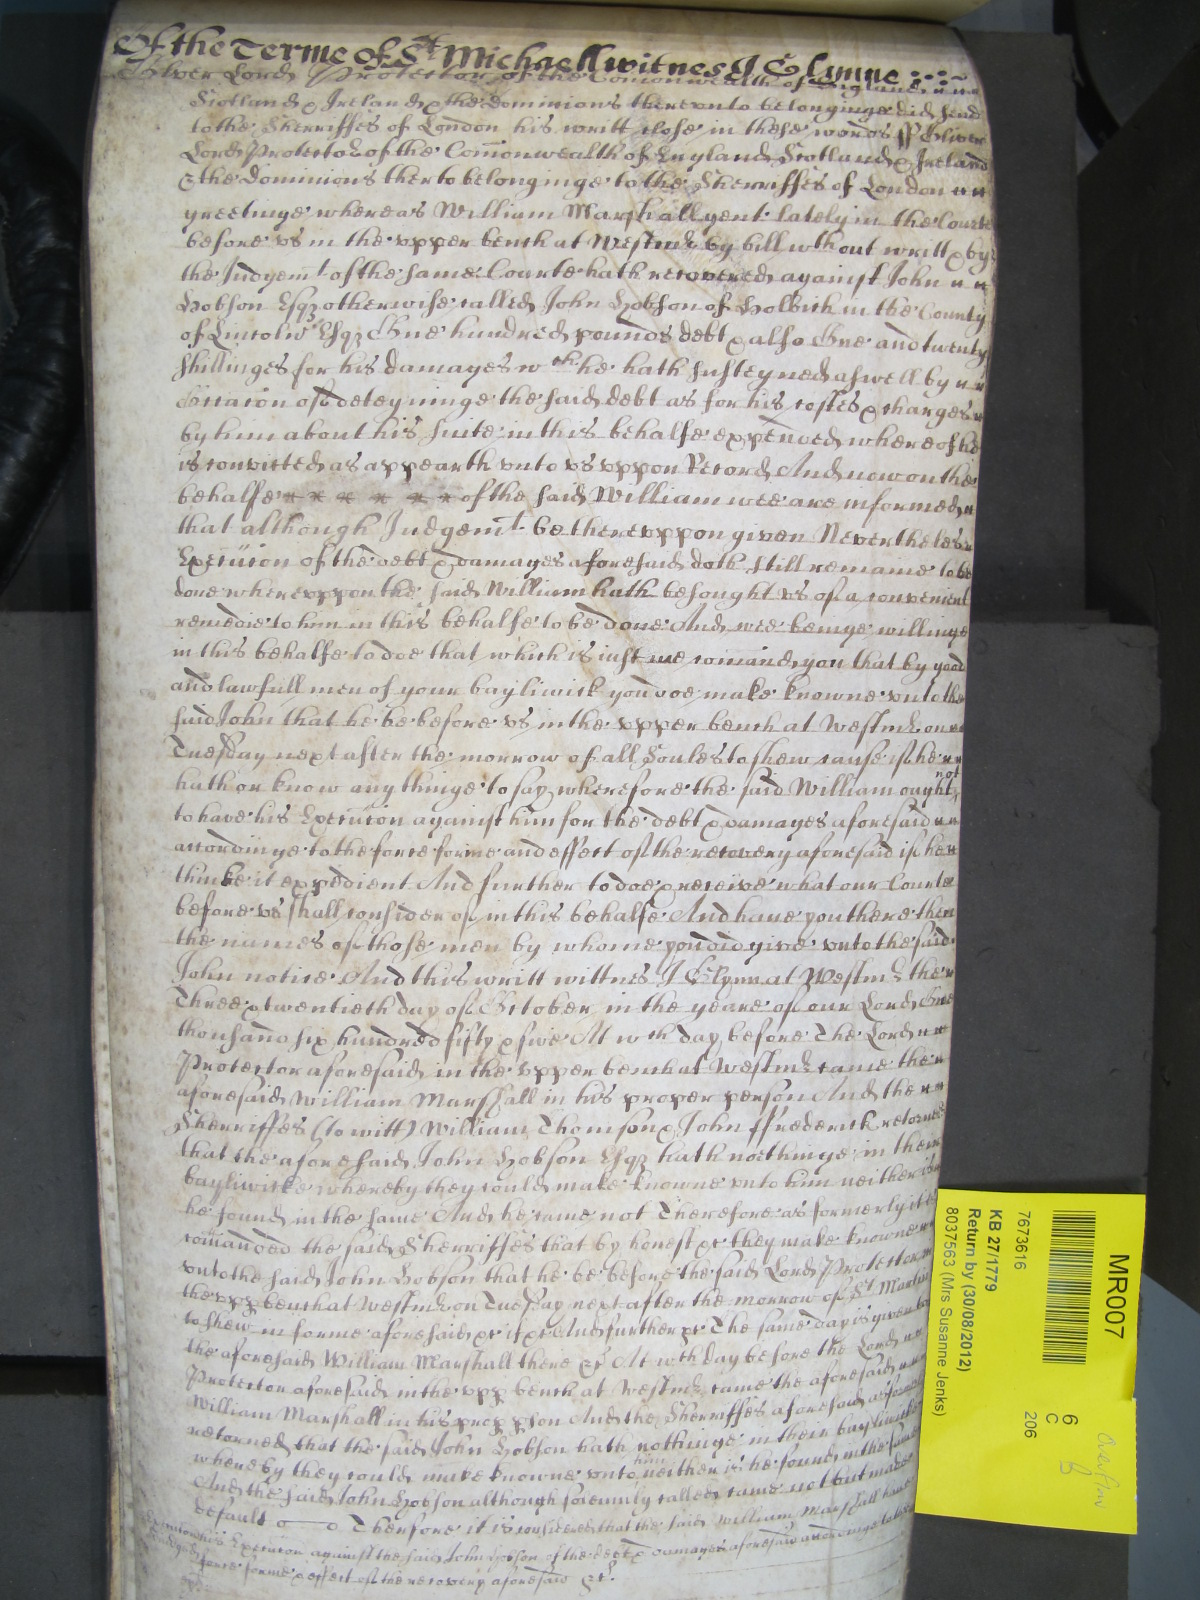 Of the Terme of St Michaell witnes J Glynne
Oliver Lord Protector of the Comonwealth of England
Scotland & Ireland & the dominions therevnto belonginge did send
to the Sherriffes of London his writt close in these words ss Oliver
Lord Protector of the Comonwealth of England Scotland & Ireland
& the dominions therto belonginge to the Sherriffes of London
greetinge whereas William Marshall gent lately in the Courte
before vs in the vpper bench at Westmr by bill wthout writt & by
the Judgemt of the same Courte hath recovered against John
Hobson Esqr otherwise called John Hobson of Holbich in the County
of Lincoln Esqr One hundred pounds debt & also One and twenty
shillinges for his damages wch he hath susteyned aswell by
occacion of deteyninge the said debt as for his costes & charges
by him about his suite in this behalfe expended whereof he
is convicted as appearth vnto vs vppon Record And now on the
behalfe of the said William wee are informed
that although Judgemt be therevppon given Nevertheles
Execucion of the debt & damages aforesaid doth still remaine to be
done wherevppon the said William hath besought vs of a convenient
remedie to him in this behalfe to be done And wee beinge willinge
in this behalfe to doe that which is iust we comand you that by good
and lawfull men of your bayliwick you doe make knowne vnto the
said John that he be before vs in the vpper bench at Westmr on
Tuesday next after the morrow of all Soules to shew cause if he
hath or know any thinge to say wherefore the said William ought not
to have his Execucion against him for the debt & damages aforesaid
accordinge to the force forme and effect of the recovery aforesaid if he
thinke it expedient And further to doe & receive what our Courte
before vs shall consider of in this behalfe And haue you there then
the names of those men by whome you did give vnto the said
John notice And this writt wittnes J Glynn at Westmr the
Three & twentieth day of October in the yeare of our Lord One
thousand six hundred fifty & five At wch day before The Lord
Protector aforesaid in the vpper bench at Westmr came the
aforesaid William Marshall in his proper person And the
Sherriffes (to witt) William Thomson & John ffrederick retorned
that the aforesaid John Hobson Esqr hath nothinge in their
bayliwicke whereby they could make knowne vnto him neither is
he found in the same And he came not Therefore as formerly it is
comanded the said Sherriffes that by honest &c they make knowne
vnto the said John Hobson that he be before the said Lord Protector in
the vpp bench at Westmr on Tuesday next after the morrow of St Martin
to shew in forme aforesaid &c if &c And further &c The same day is given to
the aforesaid William Marshall there &c At wch day before the Lord
Protector aforesaid in the vpp bench at Westmr came the aforesaid
William Marshall in his prop pson And the Sherriffes aforesaid as formerly
retorned that the said John Hobson hath nothinge in their bayliwicke
whereby they could make knowne vnto him neither is he found in the same
And the said John Hobson although solemnly called came not but made
default Therefore it is considered that the said William Marshall have
his Execucion against the said John Hobson of the debt & damages aforesaid accordinge to
force forme & effect of the recovery aforesaid &c
MR007
7673616
KB 27/1779
Return by (30/08/2012)
8037563 (Mrs Susanne Jenks)
6
C
206